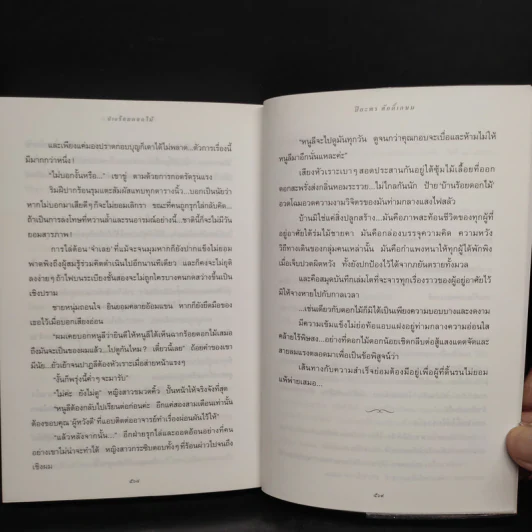 บ้านร้อยดอกไม้
และเพียงแค่มองปราดกอบบุญก็เดาได้ไม่พลาด...ตัวการเรื่องนี้
มีมากกว่าหนึ่ง!
"ไม่บอกงั้นหรือ..." เขาขู่ ตามด้วยการกอดรัดรุนแรง
ริมฝีปากร้อนรุมแตะสัมผัสแทบทุกตารางนิ้ว...บอกเป็นนัยว่า
หากไม่บอกมาเสียดีๆ ก็คงจะไม่ยอมเลิกรา ขณะที่คนถูกรุกไล่กลับคิด...
ถ้าเป็นการลงโทษที่หวานล้ำและรนอารมณ์อย่างนี้...ชาตินี้ก็จะไม่มีวัน
ยอมสารภาพ!
การไล่ต้อน 'จำเลย' ที่แม้จะจนมุมหากก็ยังปากแข็งไม่ยอม
พาดพิงถึงผู้สมรู้ร่วมคิดดำเนินไปอีกนานทีเดียว และก็คงจะไม่ยุติ
ลงง่ายๆ ถ้าไฟบนระเบียงชั้นสองจะไม่ถูกใครบางคนกดสว่างขึ้นเป็น
เชิงปราม
ชายหนุ่มถอนใจ ยินยอมคลายอ้อมแขน หากก็ยังยึดมือของ
เธอไว้เมื่อบอกเสียงอ่อน
"ผมเคยบอกหนูลีว่ายินดีให้หนูลีได้เห็นฉากร้อยดอกไม้เสมอ
ถึงมันจะเป็นของผมแล้ว...ไปดูกันไหม? เดี๋ยวนี้เลย" ถ้อยคำของเขา
มีนัย...ยั่วเย้าจนปาลีต้องหัวเราะเมื่อส่ายหน้าแรงๆ
"งั้นก็พรุ่งนี้ค่ำๆ จะมารับ"
"ไม่ค่ะ ยังไม่ดู" หญิงสาวขมวดคิ้ว ปั้นหน้าให้จริงจังที่สุด
"หนูลีต้องกลับไปเรียนต่อก่อนค่ะ อีกแค่สองสามเดือนเท่านั้น
ต้องขอบคุณ 'ผู้หวังดี' ที่แอบติดต่ออาจารย์ทำเรื่องผ่อนผันไว้ให้"
"แล้วหลังจากนั้น..." อีกฝ่ายรุกไล่และออดอ้อนอย่างที่คน
อย่างเขาไม่น่าจะทำได้ หญิงสาวกระซิบตอบทั้งๆ ที่ร้อนผ่าวไปจนถึง
เชิงผม
ปิยะพร ศักดิ์เกษม
"หนูลีจะไปดูมันทุกวัน ดูจนกว่าคุณกอบจะเบื่อและห้ามไม่ให้
หนูลีมาอีกนั่นแหละค่ะ"
เสียงหัวเราะเบาๆ สอดประสานกันอยู่ใต้ซุ้มไม้เลื้อยที่ออก
ดอกสะพรั่งส่งกลิ่นหอมระรวย...ไม่ไกลกันนัก ป้าย 'บ้านร้อยดอกไม้'
อวดโฉมอวดความงามวิจิตรของมันท่ามกลางแสงไฟสลัว
บ้านมิใช่แค่สิ่งปลูกสร้าง...มันคือภาพสะท้อนชีวิตของทุกผู้ที่
อยู่อาศัยใต้ร่มไม้ชายคา มันคือกล่องบรรจุความคิด ความหวัง
วิถีทางเดินของกลุ่มคนเหล่านั้น มันคือกำแพงหนาให้ทุกผู้ได้พักพิง
เมื่อเจ็บปวดผิดหวัง ทั้งยังปกป้องไว้ได้จากภยันตรายทั้งมวล
และคือสมุดบันทึกเล่มโตที่จะจารทุกเรื่องราวของผู้อยู่อาศัยไว้
มิให้จางหายไปกับกาลเวลา
...เช่นเดียวกับดอกไม้ก็มิได้เป็นเพียงความบอบบางและงดงาม
มีความเข้มแข็งไม่ย่อท้อแอบแฝงอยู่ท่ามกลางความอ่อนไสว
คล้ายไร้พิษสง...อย่างที่ดอกไม้ดอกน้อยเชิดกลีบต่อสู้แสงแดดจัดและ
สายลมแรงตลอดมาเพื่อเป็นข้อพิสูจน์ว่า
เส้นทางกับความสำเร็จย่อมต้องมีอยู่เพื่อผู้ที่ดิ้นรนไม่ยอม
แพ้พ่ายเสมอ...